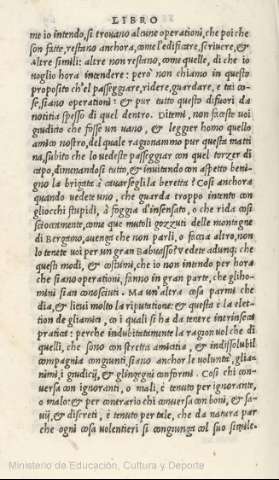 LIBRO
me io intendo, si trouano alcune operationi, che poi che
son fatte, restano anchora, come l'edificare, scriuere, &
altre simili: altre non restano, come quelle, di che io
uoglio hora intendere: però non chiamo in questo
proposito ch'el passeggiare, ridere, guardare, e tai co-
se, siano operationi: & pur tutto questo di fuori da
notitia spesso di quel dentro. Ditemi, non faceste uoi
giudicio che fosse un uano, & leggier homo quello
amico nostro, del quale ragionammo pur questa matti
na, subito che lo uedeste passeggiar con quel torzer di
capo, dimenandosi tutto, & inuitando con aspetto beni-
gno la brigata à cauarsegli la beretta? Cosi anchora
quando uedete uno, che guarda troppo intento con
gliocchi stupidi, à foggia d'insensato, o che rida cosi
scioccamente, come que mutoli gozzuti delle montagne
di Bergamo, auenga che non parli, o faccia altro, non
lo tenete uoi per un gran Babuasso? Vedete adunq; che
questi modi, & costumi, che io non intendo per hora
che siano operationi, fanno in gran parte, che glihomi-
mini sian conosciuti. Ma un'altra cosa parmi che
dia, & lieui molto la riputatione: & questa è la elet-
tion de gliamici, co i quali si ha da tenere intrinseca
pratica: perche indubitatamente la ragion uol che di
quelli, che sono con stretta amicitia, & indissolubil
compagnia congiunti, siano anchor le voluntà, glia-
nimi, i giudicij, & glingegni conformi. Cosi chi con-
uersa con ignoranti, o mali, è tenuto per ignorante,
o malo: & per contrario chi conuersa con boni, & sa-
uij, & discreti, è tenuto per tale, che da natura par
che ogni cosa volentieri si congiunga col suo simile.
Ministerio de Educación, Cultura y Deporte